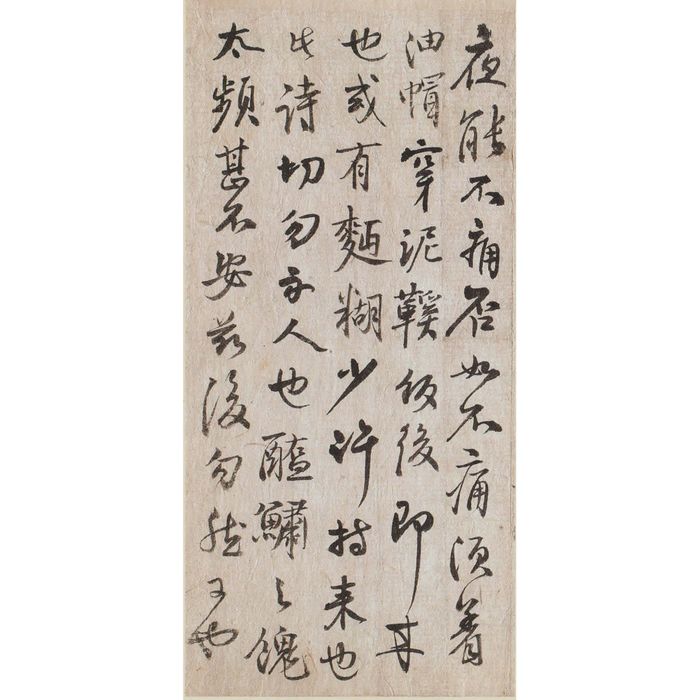 夜能不痛否如不痛須着
油帽穿泥鞵飯後即来
也或有麪糊少許持来也
此詩切勿示人也醢鱐之餽
太頻甚不安玆後勿然可也